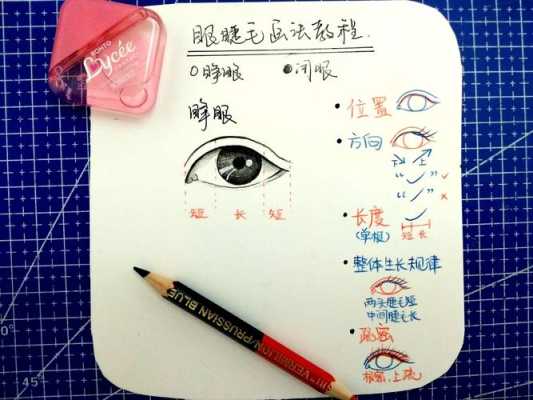 眼睫毛画法教程
○睁眼 ●闭眼
睁眼
短 长 短
• 位置
• 方向
下 上
“ ” ✓
“ ” ×
• 长度
(单根) 短 长
• 整体生长规律
两头睫毛短
中间睫毛长
• 疏密
根密,上疏
SONTO
Lycée
VERMILION/PRUSSIAN BLUE
45°